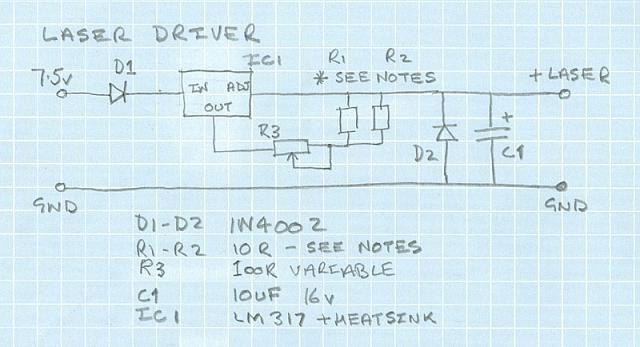 LASER DRIVER
IC1
R1 R2
7.5v D1
* SEE NOTES
+ LASER
IN ADJ
OUT
R3
+
D2
C1
GND GND
D1-D2 1N4002
R1-R2 10R - SEE NOTES
R3 100R VARIABLE
C1 10UF 16v
IC1 LM317 + HEATSINK